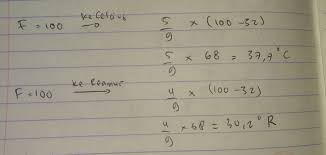 F = 100 ke Celcius → 5/9 × (100 - 32)
5/9 × 68 = 37,7° C
F = 100 ke Reamur → 4/9 × (100 - 32)
4/9 × 68 = 30,2° R